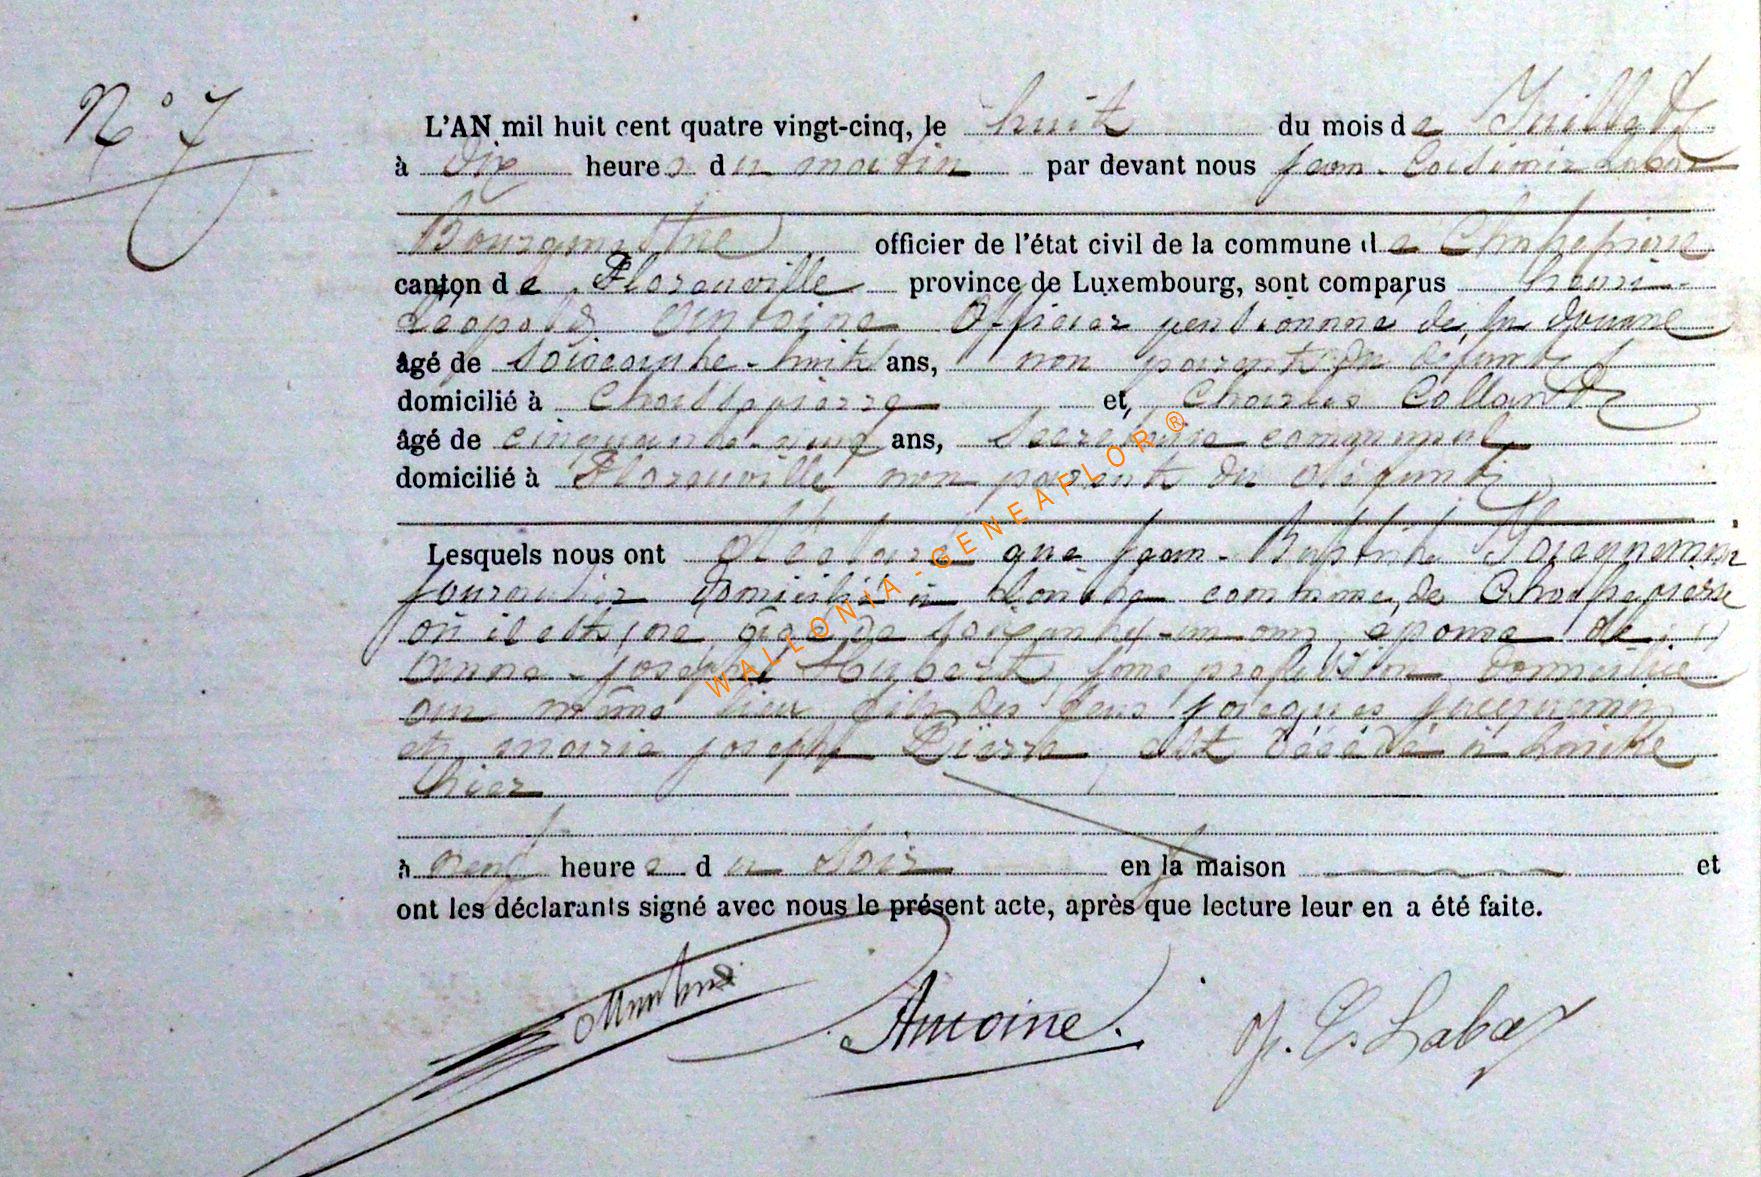 N° 7
L'AN mil huit cent quatre vingt-cinq, le huit du mois de Juillet
à dix heures du matin par devant nous Jean-Casimir Labar
Bourgmestre officier de l'état civil de la commune de Chassepierre
canton de Florenville province de Luxembourg, sont comparus henri-
Léopold Antoine Officier pensionné de la douane
âgé de soixante-huit ans, non parent du défunt
domicilié à Chassepierre et, Charles Collard
âgé de cinquante-neuf ans, Secrétaire communal
domicilié à Florenville non parent du défunt
Lesquels nous ont déclaré que Jean-Baptiste Jacquemin
journalier domicilié à Laiche commune de Chassepierre
où il est né âgé de soixante-un ans, époux de
Anne-Josephe Hubert, sans profession domiciliée
au même lieu fils des feus Jacques Jacquemin
et marie joseph Pierre, est décédé à Laiche
hier
à neuf heures du soir en la maison et
ont les déclarants signé avec nous le présent acte, après que lecture leur en a été faite.
Antoine. J. C. Labar
WALLONIA-GENEAFLOR®